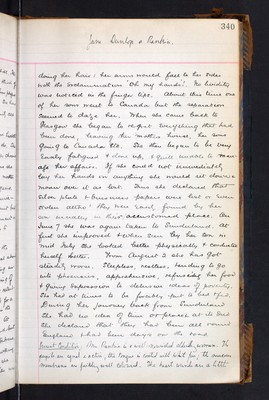 340
Jane Dunlop or Rankin.
doing her hair: her arms would fall to her sides
with the exclamation "Oh my hands". No lividity
was noticed in the finger tips. About this time one
of her sons went to Canada but the separation
seemed to daze her. When she came back to
Glasgow she began to regret everything that had
been done, leaving her mother's house, her son
going to Canada etc. She then began to be very
easily fatigued & done up, & quite unable to man-
age her affairs. If she could not immediately
lay her hands on anything she would sit down &
moan over it as lost. Thus she declared that
silver plate & business papers were lost or even
stolen altho' they were found by her
son usually in their accustomed place. On
June 7 she was again taken to Sunderland. At
first she improved & when seen by her son in
mid July she looked better physically & conducted
herself better. From August 2 she has got
steadily worse. Sleepless, restless, tending to go
into phrenzies, apprehensive, refusing her food
& giving expression to delusive ideas of poverty.
She had at times to be forcibly put to bed & fed.
During the journey back from Sunderland
she had no idea of time or place: at its end
she declared that they had been all round
England & had been days on the road.
Present Condition. Mrs Rankin is a well nourished elderly woman. The
pupils are equal & active, the tongue is coated with white fur, the mucous
membranes are fairly well coloured. The heart sounds are a little